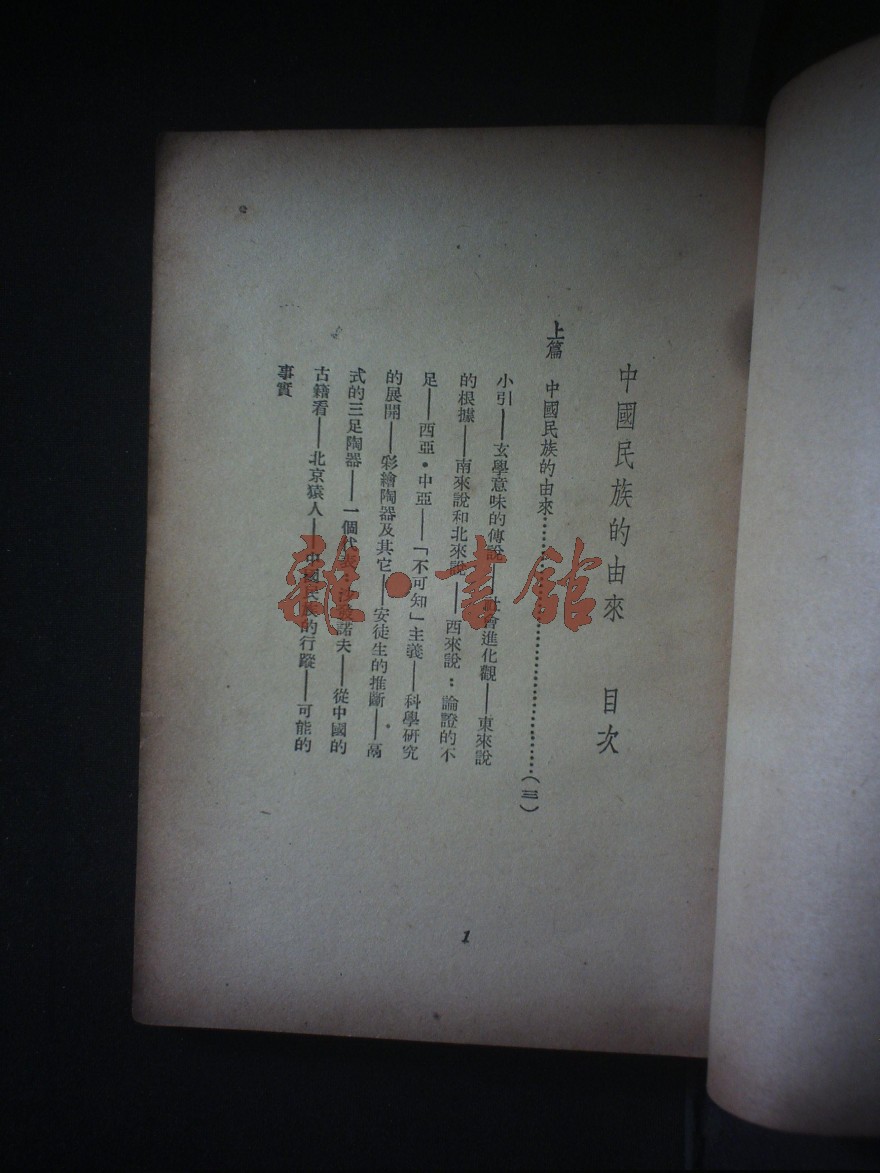 中國民族的由來 目次
上篇 中國民族的由來……………………………(三)
小引——玄學意味的傳說——社會進化觀——東來說
的根據——南來說和北來說——西來說：論證的不
足——西亞·中亞——「不可知」主義——科學研究
的展開——彩繪陶器及其它——安徒生的推斷——鬲
式的三足陶器——一個代表：諾夫——從中國的
古籍看——北京猿人——中國民族的行蹤——可能的
事實
1
雜·書館